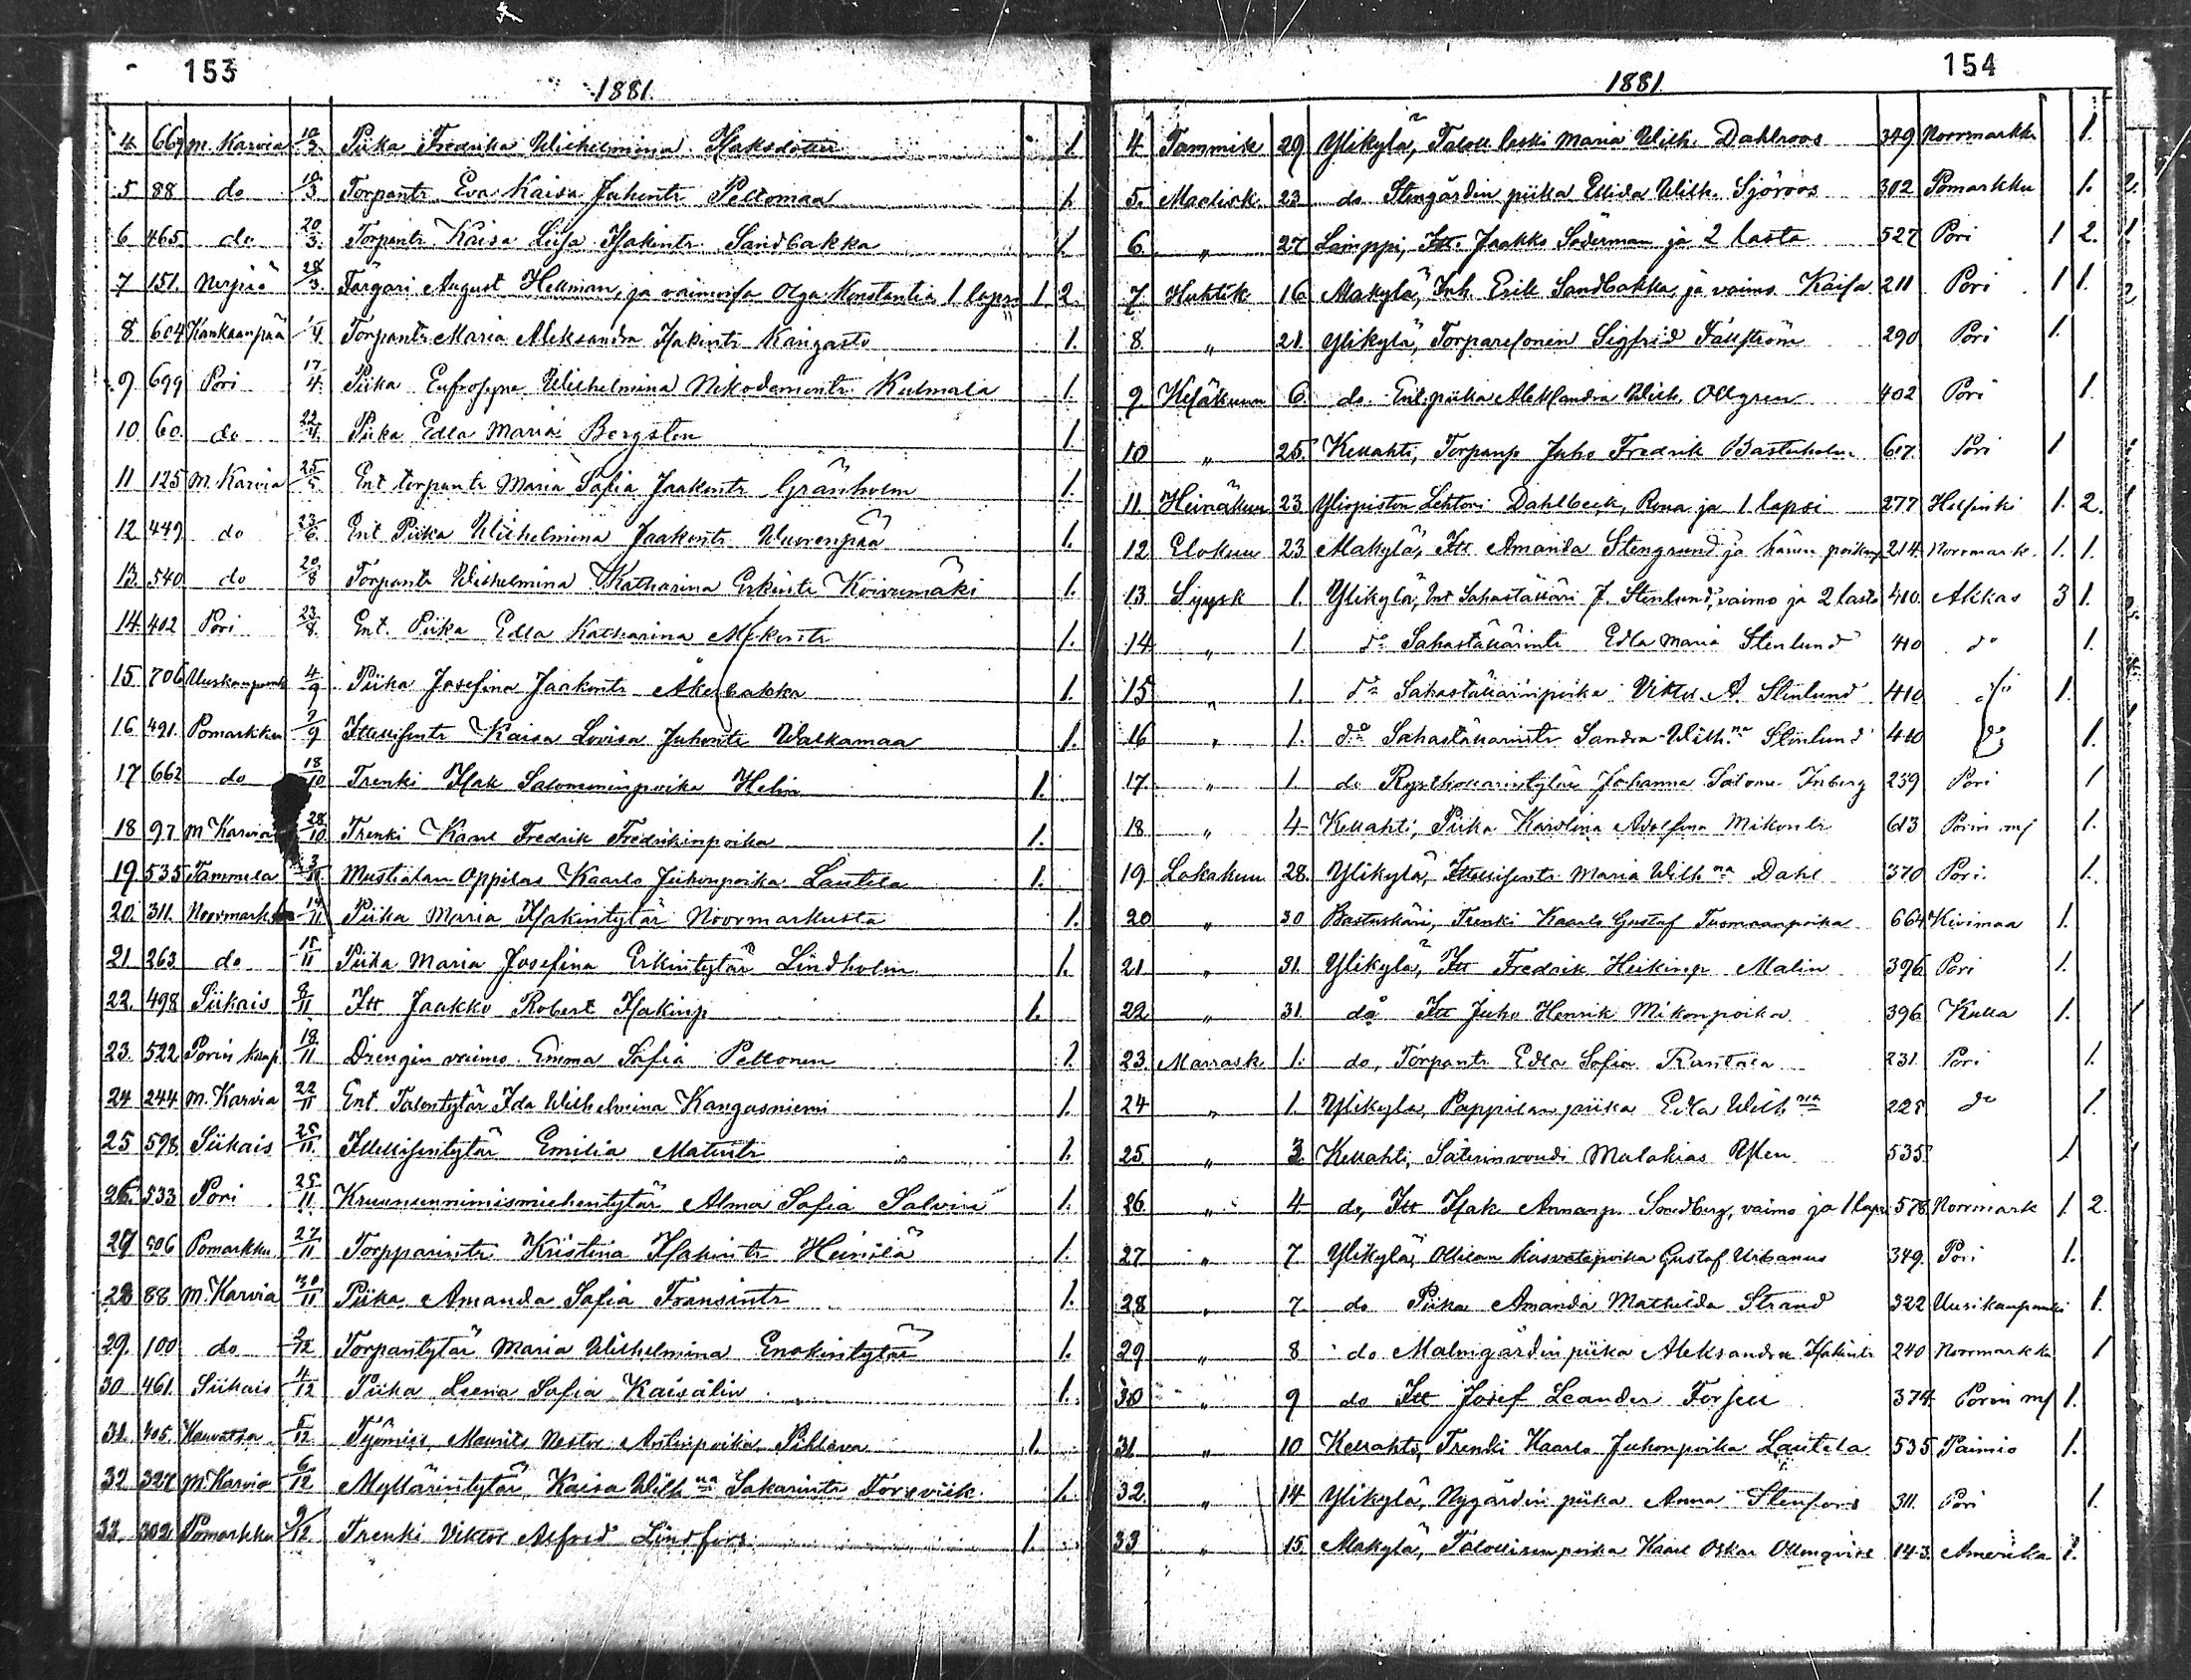 153
1881.
4. 669 M. Karvia 10/3 Piika Fredrika Wilhelmina Isaksdotter 1.
5 88 do 18/3 Torpantr Eva Kaisa Juhontr Peltomaa 1.
6 465 do 20/3. Torpantr Kaisa Liisa Isakintr Sandbakka 1.
7 151. Nerpiö 28/3. Färgäri August Hellman, ja vaimonsa Olga Konstantia 1 lapsi 1 2.
8 604 Kankaanpää 1/4 Torpantr Maria Aleksandra Isakintr Kangasto 1.
9 699 Pori 17/4. Piika Eufrosyne Wilhelmina Nikodemontr Kulmala 1.
10 60. do 22/4. Piika Edla Maria Bergsten 1.
11 125 M. Karvia 25/5 Ent torpantr Maria Sofia Jaakontr Gränholm 1.
12 449 do 23/6. Ent Piika Wilhelmina Jaakontr Wuorenpää 1.
13. 540 do 20/8 Torpantr Wilhelmina Katharina Erkintr Koivumäki 1.
14. 402 Pori 23/8. Ent. Piika Edla Katharina 1.
15 706 4/9. Piika Josefina Jaakontr Åkerbakka 1.
16 491. Pomarkku 9 Itellisentr Kaisa Lovisa Juhontr Walkamaa 1.
17 662 do 18/10 Trenki Isak Salomoninpoika Helin 1.
18 97. M Karvia 28/10. Trenki Kaarl Fredrik Fredrikinpoika 1.
19 535 Tammela 3/11 Mustialan Oppilas Kaarlo Juhonpoika Lautela 1.
20. 311. Noormarkku 14/11 Piika Maria Isakintytär Noormarkusta 1.
21. 263 do 15/11 Piika Maria Josefina Erkintytär Lindholm 1.
22. 498 Siikais 8/11 Itt Jaakko Robert Isakinp 1.
23. 522 Porin kaup. 18/11 Drengin vaimo Emma Sofia Peltonen 1.
24 244 M. Karvia 22/11 Ent Talontytär Ida Wilhelmina Kangasniemi 1.
25 598. Siikais 25/11. Itellisentytär Emilia Matintr 1.
26. 533 Pori 25/11. Kruununnimismiehentytär Alma Sofia Salvin 1.
27 506 Pomarkku 27/11 Torpparintr Kristina Isakintr Heinilä 1.
28 88 M. Karvia 30/11 Piika Amanda Sofia Fransintr 1.
29. 100 do 2/12 Torpantytär Maria Wilhelmina Enokintytär 1.
30 461 Siikais 4/12 Piika Leena Sofia Kaisalin 1.
31. 405. Kauvatsa 5/12 Työmies Maurits Nestor Antinpoika Pihlava 1.
32 327 M. Karvia 6/12 Myllärintytär Kaisa Wilhna Sakarintr Forsviik 1.
33. 302 Pomarkku 9/12. Trenki Viktor Alfred Lindfors 1.
154
1881.
4. Tammik 29 Ylikylä, Taloll leski Maria Wilh. Dahlroos 349 Noormarkku 1.
5. Maalisk. 23 do Stengårdin piika Elida Wilh. Sjöroos 302 Pomarkku 1.
6. " 27 Lamppi, Itt. Jaakko Söderman ja 2 lasta 527 Pori 1 2.
7. Huhtik 16 Alakylä, Inh. Erik Sandbakka, ja vaimo Kaisa 211 Pori 1 1.
8. " 21. Ylikylä, Torparesonen Sigfrid Fällström 290 Pori 1.
9. Kesäkuun 6 do Ent. piika Aleksandra Wilh. Ollgren 402 Pori 1.
10 " 25. Kellahti, Torpanp Juho Fredrik Bastuholm 617. Pori 1
11. Heinäkuu 23. Yliopiston Lehtori Dahlbeck, Rova ja 1 lapsi 277 Helsinki 1. 2.
12. Elokuu 23 Alakylä, Itt Amanda Stengrund ja hänen poikansa 214. Noormark. 1. 1.
13. Syysk 1. Ylikylä, Ent Sahaställäri J. Stenlund, vaimo ja 2 lasta 410. Akkas 3 1.
14 " 1. do Sahaställärintr Edla Maria Stenlund 410 do 1.
15 " 1. do Sahaställärinpoika Viktor A. Stenlund 410 do 1.
16 " 1. do Sahaställärintr Sandra Wilh.na Stenlund 410 do 1.
17. " 1 do Johanna Salome Inberg 239 Pori 1
18 " 4 Kellahti, Piika Karolina Adolfina Mikontr 613 Porin mf 1.
19. Lokakuu 28. Ylikylä, Itellisentr Maria Wilhna Dahl 370 Pori. 1.
20 " 30 Bastuskäri, Trenki Kaarlo Gustaf Tuomaanpoika 664 Kivimaa 1.
21 " 31. Ylikylä, Itt Fredrik Heikinp Malin 396 Pori 1.
22 " 31. do Itt Juho Henrik Mikonpoika 396 Kulla 1.
23. Marrask 1. do, Torpantr Edla Sofia 231. Pori 1.
24 " 1. Ylikylä, Pappilan piika Edla Wilhna 225 do 1.
25. " 3. Kellahti, Säterinvouti Malakias 535 1
26. " 4 do, Itt Isak Sundberg, vaimo ja 1 lapsi 578 Noormark 1. 2.
27 " 7 Ylikylä, Ollilan kasvattipoika Gustaf Urbanus 349. Pori 1.
28 " 7 do Piika Amanda Mathilda Strand 322 Uusikaupunki 1.
29 " 8 do Malmgårdin piika Aleksandra Isakintr 240 Noormarkku 1
30 " 9 do Itt Josef Leander Forsell 374 Porin mf 1.
31 " 10 Kellahti, Trenki Kaarlo Juhonpoika Lautela 535 Paimio 1.
32. " 14 Ylikylä, Nygårdin piika Anna Stenfors 311. Pori 1.
33 " 15. Alakylä, Talollisenpoika Kaarl Oskar Ollenqvist 143. Amerika 1.